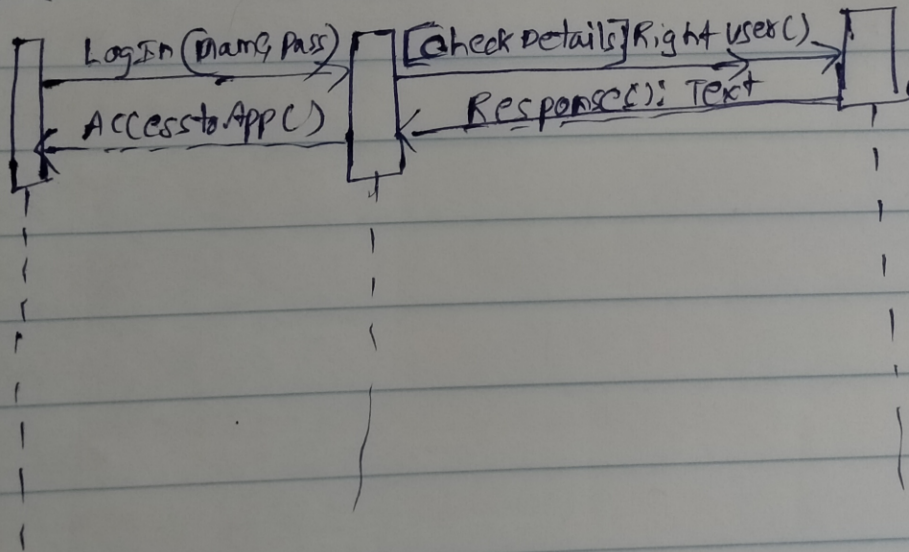 LogIn(name, pass)
[CheckDetails]Rightuser()
AccesstoApp()
Response(): Text